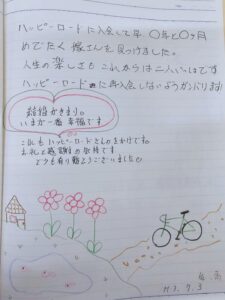 ハッピーロードに入会して早〇年と〇ヶ月
めでたく嫁さんを見つけました。
人生の楽しさも これからは二人いっしょです
ハッピーロードに再入会しないようがんばります!
結婚がきまり。
いまが一番 幸福です
これもハッピーロードさんのおかげです。
お礼と感謝の気持です
どうも有り難とうございました
H.3.7.3